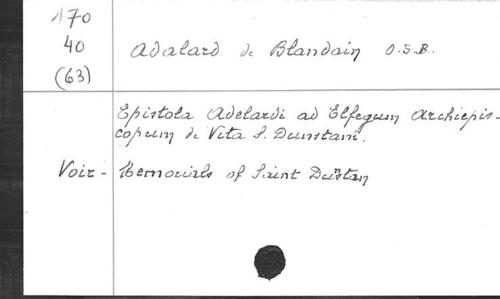 170
40 Adalard de Blandain O.S.B.
(63)
Epistola Adelardi ad Elfegum Archiepis-
copum de Vita S. Dunstani.
Voir - Memorials of Saint Dustan